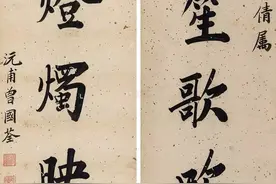 倩属
笙歌吹
燈燭映
沅甫曾國荃